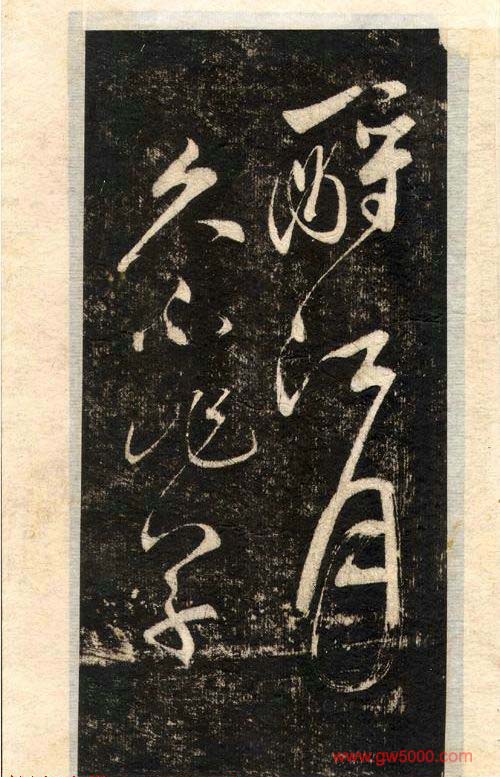 酹江月
久不作草
www.gw5000.com